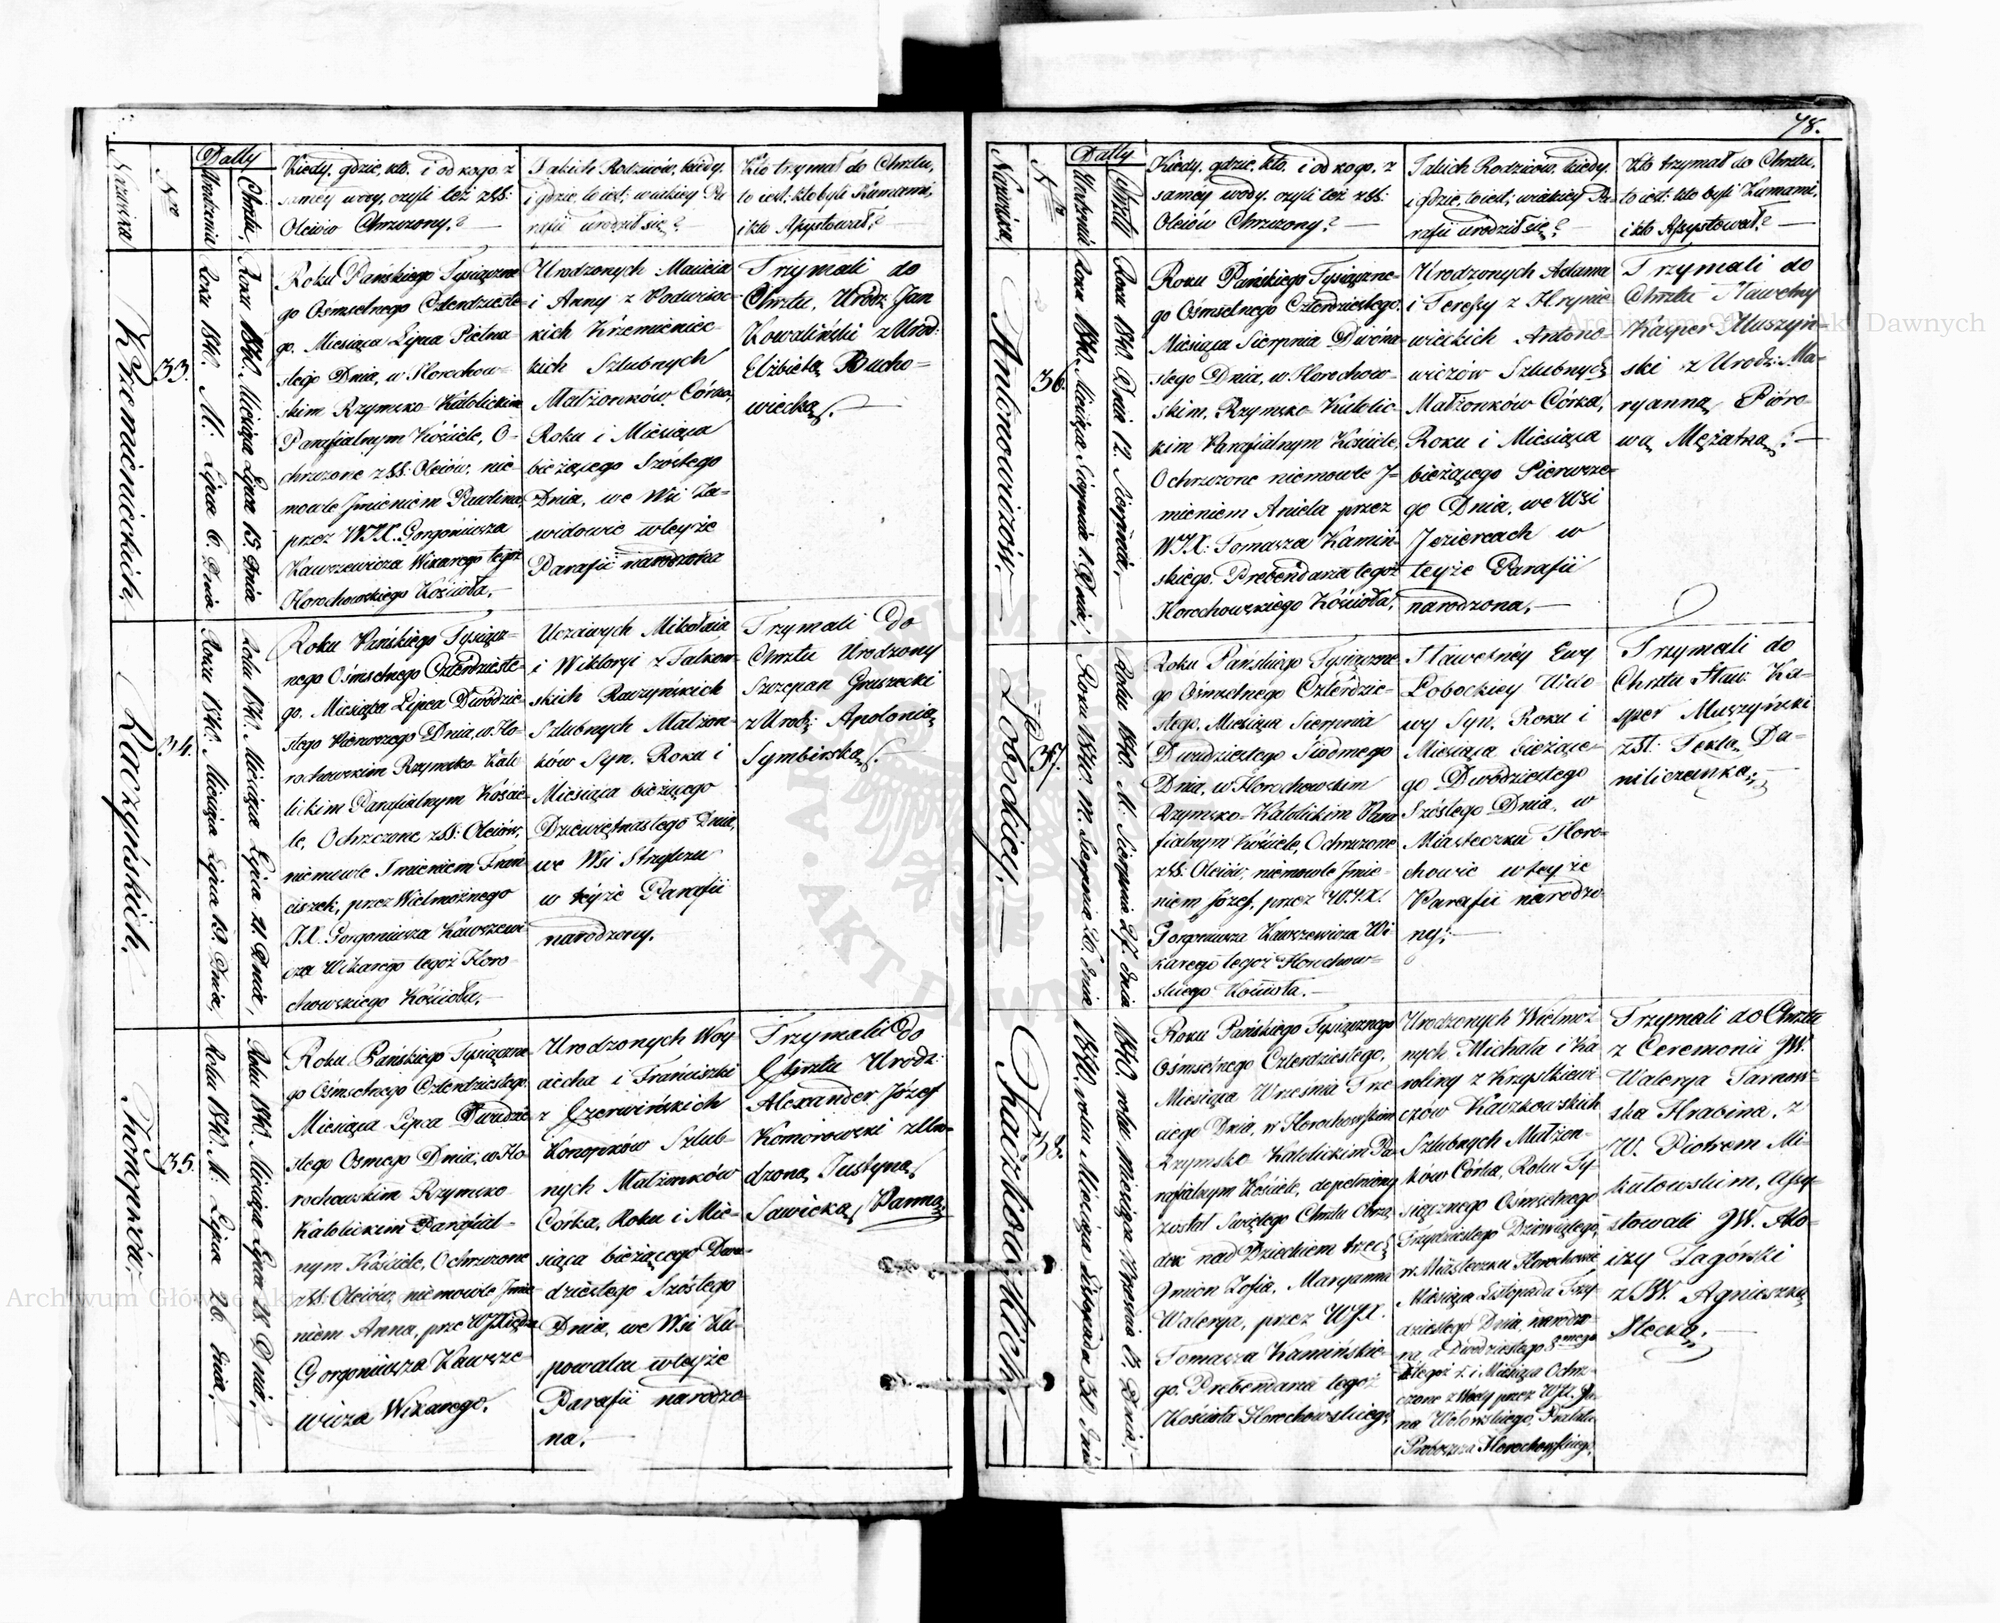 78.
Nazwiska
Nro
Datty
Urodzenia
Chrztu,
Kiedy, gdzie, kto, i od kogo, z
samey wody, czyli też z SS:
Oleiów Chrzczony?
Jakich Rodziców, kiedy,
i gdzie, to iest; w iakiey Pa
rafii urodził się?
Kto trzymał do Chrztu,
to iest: kto byli Kumami,
i kto Assystował?
Krzemienieckich,
33.
Roku 1840. M: Lipca 6. Dnia
Roku 1840. Miesiąca Lipca 15. dnia
Roku Pańskiego Tysiączne
go Ośmsetnego Czterdzieste-
go, Miesiąca Lipca Piętna
stego Dnia, w Horochow-
skim Rzymsko-Katolickim
Parafialnym Kościele, O-
chrzczone z SS. Oleiów, nie
mowle Imieniem Paulina,
przez WJX. Gorgoniusza
Kawszewicza Wikarego tegoż
Horochowskiego Kościoła,
Urodzonych Macieia
i Anny z Podwisoc-
kich Krzemieniec-
kich Szlubnych
Małżonków Córka,
Roku i Miesiąca
bieżącego Szóstego
Dnia, we Wsi Za-
widowie w teyże
Parafii narodzona
Trzymali do
Chrztu, Urodz: Jan
Kowaliński z Urod:
Elżbietą Bucho=
wiecką.
Raczyńskich,
34.
Roku 1840. Miesiąca Lipca 19. Dnia,
Roku 1840. Miesiąca Lipca 21. Dnia,
Roku Pańskiego Tysiącz-
nego Ośmsetnego Czterdzieste-
go, Miesiąca Lipca Dwódzie-
stego Pierwszego Dnia, w Ho-
rochowskim Rzymsko Kato
lickim Parafialnym Koście-
le, Ochrzczone z SS: Oleiów,
niemowle Imieniem Fran
ciszek, przez Wielmożnego
JX. Gorgoniusza Kawszewi
cza Wikarego tegoż Horo-
chowskiego Kościoła.
Uczciwych Mikołaia
i Wiktoryi z Falkow-
skich Raczyńskich
Szlubnych Małżon-
ków Syn, Roku i
Miesiąca bieżącego
Dziewiętnastego Dnia,
we Wsi Strylczu
w téyże Parafii
narodzony.
Trzymali do
Chrztu Urodzony
Szczepan Gruszecki
z Urodz: Apolonią
Symbirską.
Konopków,
35.
Roku 1840. M: Lipca 26. dnia,
Roku 1840. Miesiąca Lipca 28. Dnia,
Roku Pańskiego Tysiączne
go Ośmsetnego Czterdziestego,
Miesiąca Lipca Dwudzie
stego Osmego Dnia, w Ho-
rochowskim Rzymsko
Katolickim Parafial-
nym Kościele, Ochrzczone
z SS. Oleiów, niemowle Imie
niem Anna, prze WJXiędza
Gorgoniusza Kawsze-
wicza Wikarego.
Urodzonych Woy
ciecha i Franciszki
z Czerwińskich
Konopków Szlub-
nych Małżonków
Córka, Roku i Mie-
siąca bieżącego Dwu-
dziestego Szóstego
Dnia, we Wsi Ku-
powalcu w teyże
Parafii narodzo-
na.
Trzymali do
Chrztu Urodz:
Alexander Józef
Komorowski z Uro-
dzoną Justyną
Sawicką, Panną,
Nazwiska,
Nro
Datty
Urodzenia
Chrztu
Kiedy, gdzie, kto, i od kogo, z
saméy wody, czyli też z SS:
Oleiów Chrzczony?
Jakich Rodziców, kiedy,
i gdzie, to iest; w iakiey Pa-
rafii urodził się?
Kto trzymał do Chrztu,
to iest: kto byli Kumami,
i kto Assystował?
Antonowiczów,
36.
Roku 1840. Miesiąca Sierpnia 1. Dnia,
Roku 1840. Dnia 12. Sierpnia,
Roku Pańskiego Tysiączne-
go Ośmsetnego Czterdziestego,
Miesiąca Sierpnia Dwóna-
stego Dnia, w Horochow-
skim, Rzymsko-Katolic-
kim Parafialnym Kościele,
Ochrzczone niemowle I-
mieniem Aniela przez
WJX: Tomasza Kamiń-
skiego, Prebendarza tegoż
Horochowskiego Kościoła,
Urodzonych Adama
i Teressy z Hrynie-
wieckich Antono-
wiczów Szlubnych
Małżonków Córka,
Roku i Miesiąca
bieżącego Pierwsze-
go Dnia, we Wsi
Jeziercach w
teyże Parafii
narodzona,
Trzymali do
Chrztu Sławetny
Kasper Muszyń-
ski z Urodz: Ma-
ryanną Pióro-
wą Mężatką.
Łobockiey,
37.
Roku 1840. M. Sierpnia 26. dnia
Roku 1840. M. Sierpnia 27. dnia
Roku Pańskiego Tysiączne
go Ośmsetnego Czterdzie-
stego, Miesiąca Sierpnia
Dwudziestego Siódmego
Dnia, w Horochowskim
Rzymsko-Katolickim Para
fialnym Kościele, Ochrzczone
z SS. Oleiów, niemowle Imie-
niem Józef, przez W.J.X.
Gorgoniusza Kawszewicza Wi
karego tegoż Horochow-
skiego Kościoła.
Sławetnéy Ewy
Łobockiey Wdo
wy Syn, Roku i
Miesiąca bieżące-
go Dwódziestego
Szóstego Dnia, w
Miasteczku Horo-
chowie w teyże
Parafii narodzo
ny;
Trzymali do
Chrztu Sław: Ka-
sper Muszyński
z Sł: Teklą Da-
niliczanką;
Kaczkowskich,
38.
1840. roku Miesiąca Listopada 30. dnia
1840. roku Miesiąca Września 3. Dnia,
Roku Pańskiego Tysiącznego
Ośmsetnego Czterdziestego,
Miesiąca Września Trze
ciego Dnia, w Horochowskim
Rzymsko-Katolickim Pa-
rafialnym Kościele, dopełniony
został Swiętego Chrztu Obrzą-
dek nad Dzieckiem trzech
Imion Zofia, Maryanna
Walerya, przez WJX.
Tomasza Kamińskie-
go, Prebendarza tegoż
Kościoła Horochowskiego,
Urodzonych Wielmoż
nych Michała i Ka
roliny z Krzysztkiewi
czów Kaczkowskich
Szlubnych Małżon-
ków Córka, Roku Ty-
siącznego Ośmsetnego
Trzydziestego Dziewiątego,
w Miasteczku Horochowie
Miesiąca Listopada Trzy-
dziestego Dnia, narodzo-
na, a Dwódziestego 8mego
tegoż r. i Miesiąca Ochrz-
czone z Wody przez WJX. Ja-
na Wołowskiego, Prałata
i Proboszcza Horochowskiego,
Trzymali do Chrztu
z Ceremonii JW.
Walerya Tarnow-
ska Hrabina, z
W. Piotrem Mi-
kułowskim, Assy-
stowali JW. Alo-
izy Zagórski
z JW. Agnieszką
Stecką.